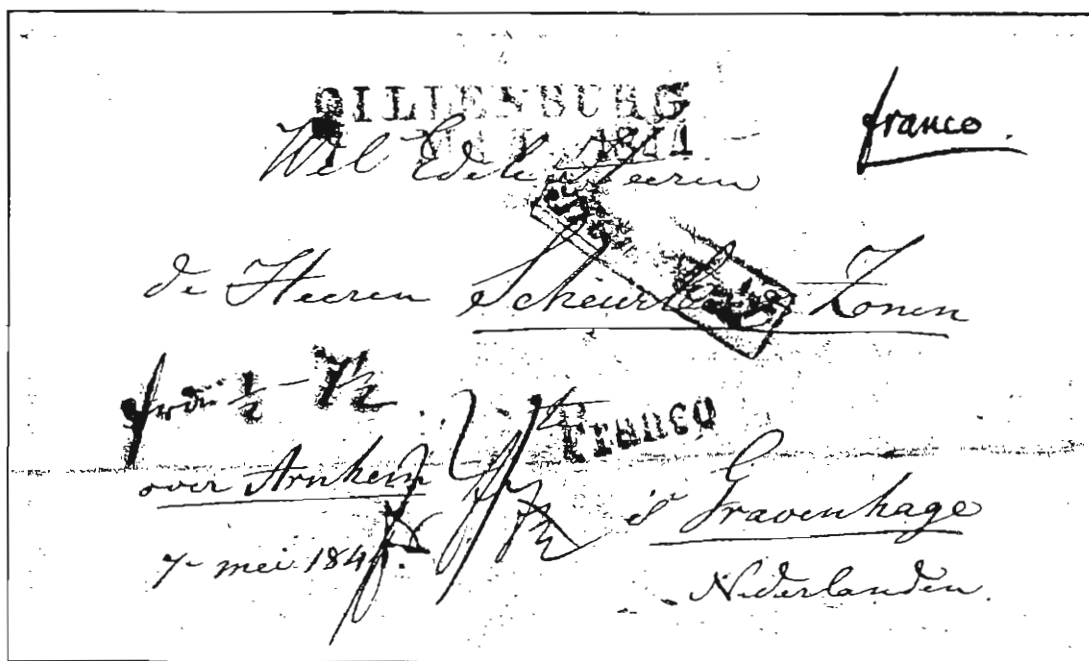 DILLENBURG
franco.
Wel Edele Heeren
de Heeren Scheurleer Zonen
frdn ½ - 7½
Franco
over Arnhem
's Gravenhage
7 mei 184
Nederlanden.